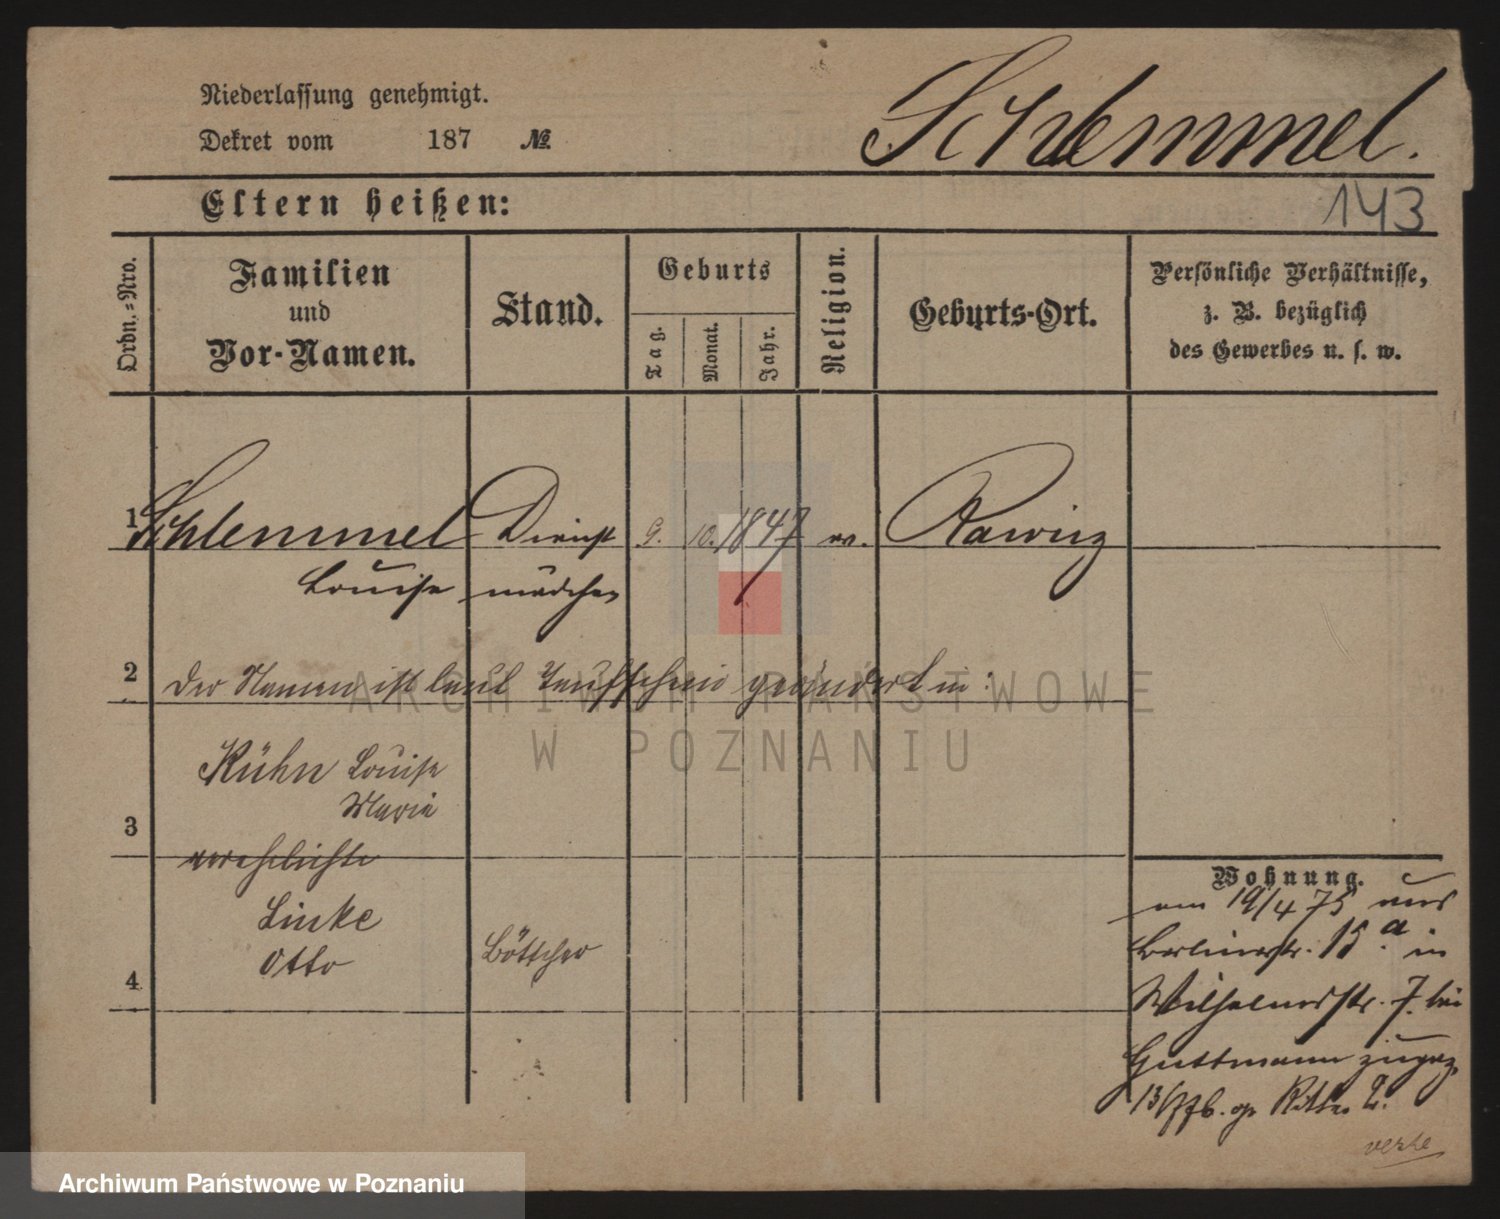 Niederlassung genehmigt.
Dekret vom 187 №
Schlemmel.
Eltern heißen:
143
Ordn.-Nro.
Familien
und
Vor-Namen.
Stand.
Geburts
Tag.
Monat.
Jahr.
Religion.
Geburts-Ort.
Persönliche Verhältnisse,
z. B. bezüglich
des Gewerbes u. s. w.
1 Schlemmel Dienst 9. 10. 1847 ev. Rawicz
Louise mädchen
2 Der Namen ist laut Taufschein geändert in:
Kühn Louise
Marie
3
verehelichte
Linke
Otto Böttcher
4
Wohnung.
am 19/4 75 aus
Berlinerstr. 15a in
Wilhelmsstr. 7. bei
Guttmann zugez.
13/7 76.
verte
ARCHIWUM PAŃSTWOWE
W POZNANIU
Archiwum Państwowe w Poznaniu